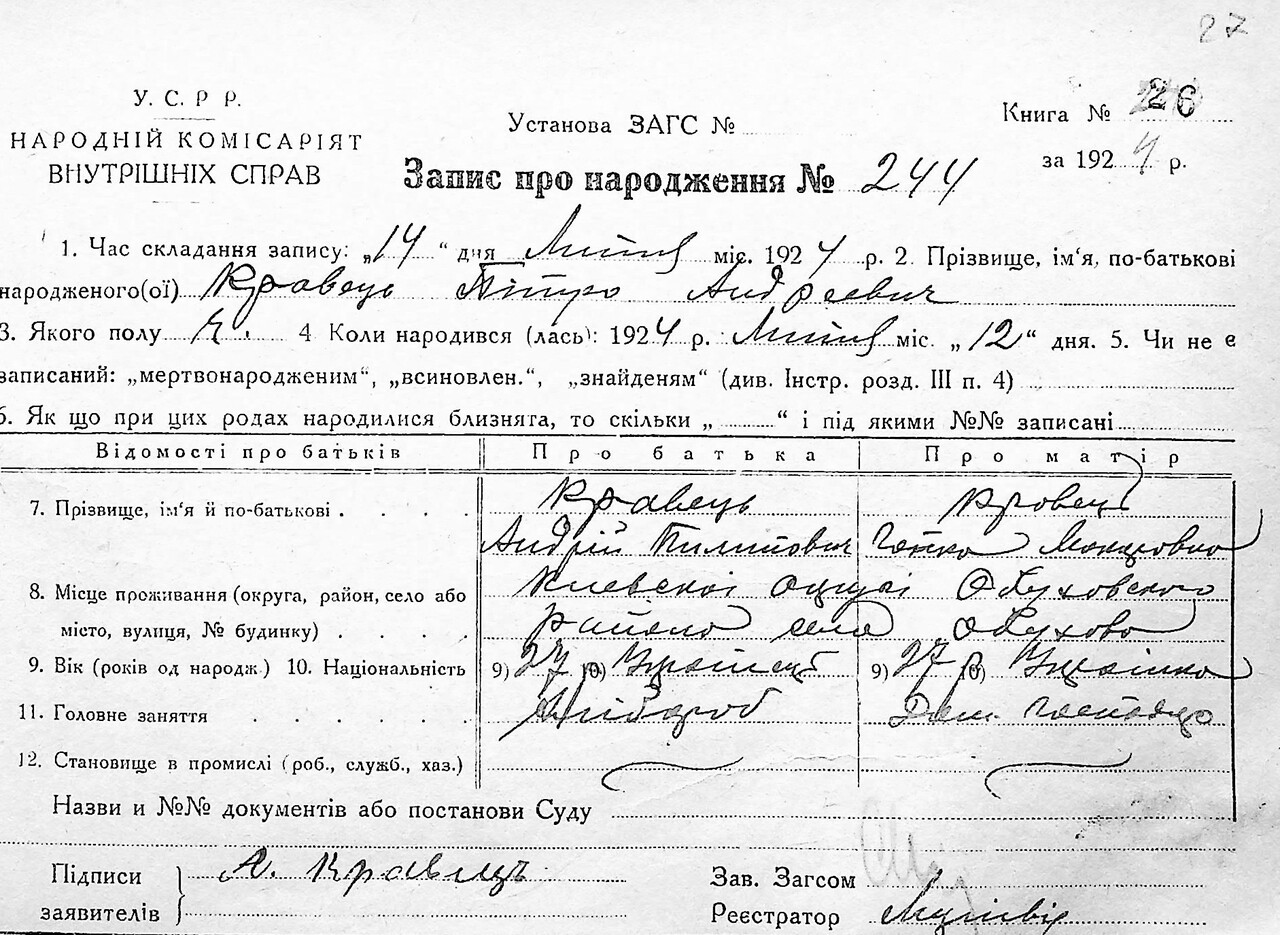 27
У. С. Р Р.
НАРОДНІЙ КОМІСАРІЯТ
ВНУТРІШНІХ СПРАВ
Установа ЗАГС №
Книга № 26
за 1924 р.
Запис про народження № 244
1. Час складання запису: „14“ дня Липня міс. 1924 р. 2. Прізвище, ім'я, по-батькові
народженого(ої) Кравець Пітро Андреевич
3. Якого полу ч. 4 Коли народився (лась): 1924 р. Липня міс. „12“ дня. 5. Чи не є
записаний: „мертвонародженим“, „всиновлен.“, „знайденям“ (див. Інстр. розд. III п. 4)
6. Як що при цих родах народилися близнята, то скільки „ “ і під якими №№ записані
Відомості про батьків Про батька Про матір
7. Прізвище, ім'я й по-батькові . . . . Кравець Кровець
Андрій Пилипович
8. Місце проживання (округа, район, село або Киевскоі округі Обуховского
місто, вулиця, № будинку) . . . . району села Обухово
9. Вік (років од народж.) 10. Національність 9) 27 10) Украінець 9) 27 10) Украінка
11. Головне заняття . . . . . . Хлібороб Дом. господар
12. Становище в промислі (роб., служб., хаз.)
Назви и №№ документів або постанови Суду
Підписи А. Кравець
заявителів
Зав. Загсом
Реєстратор